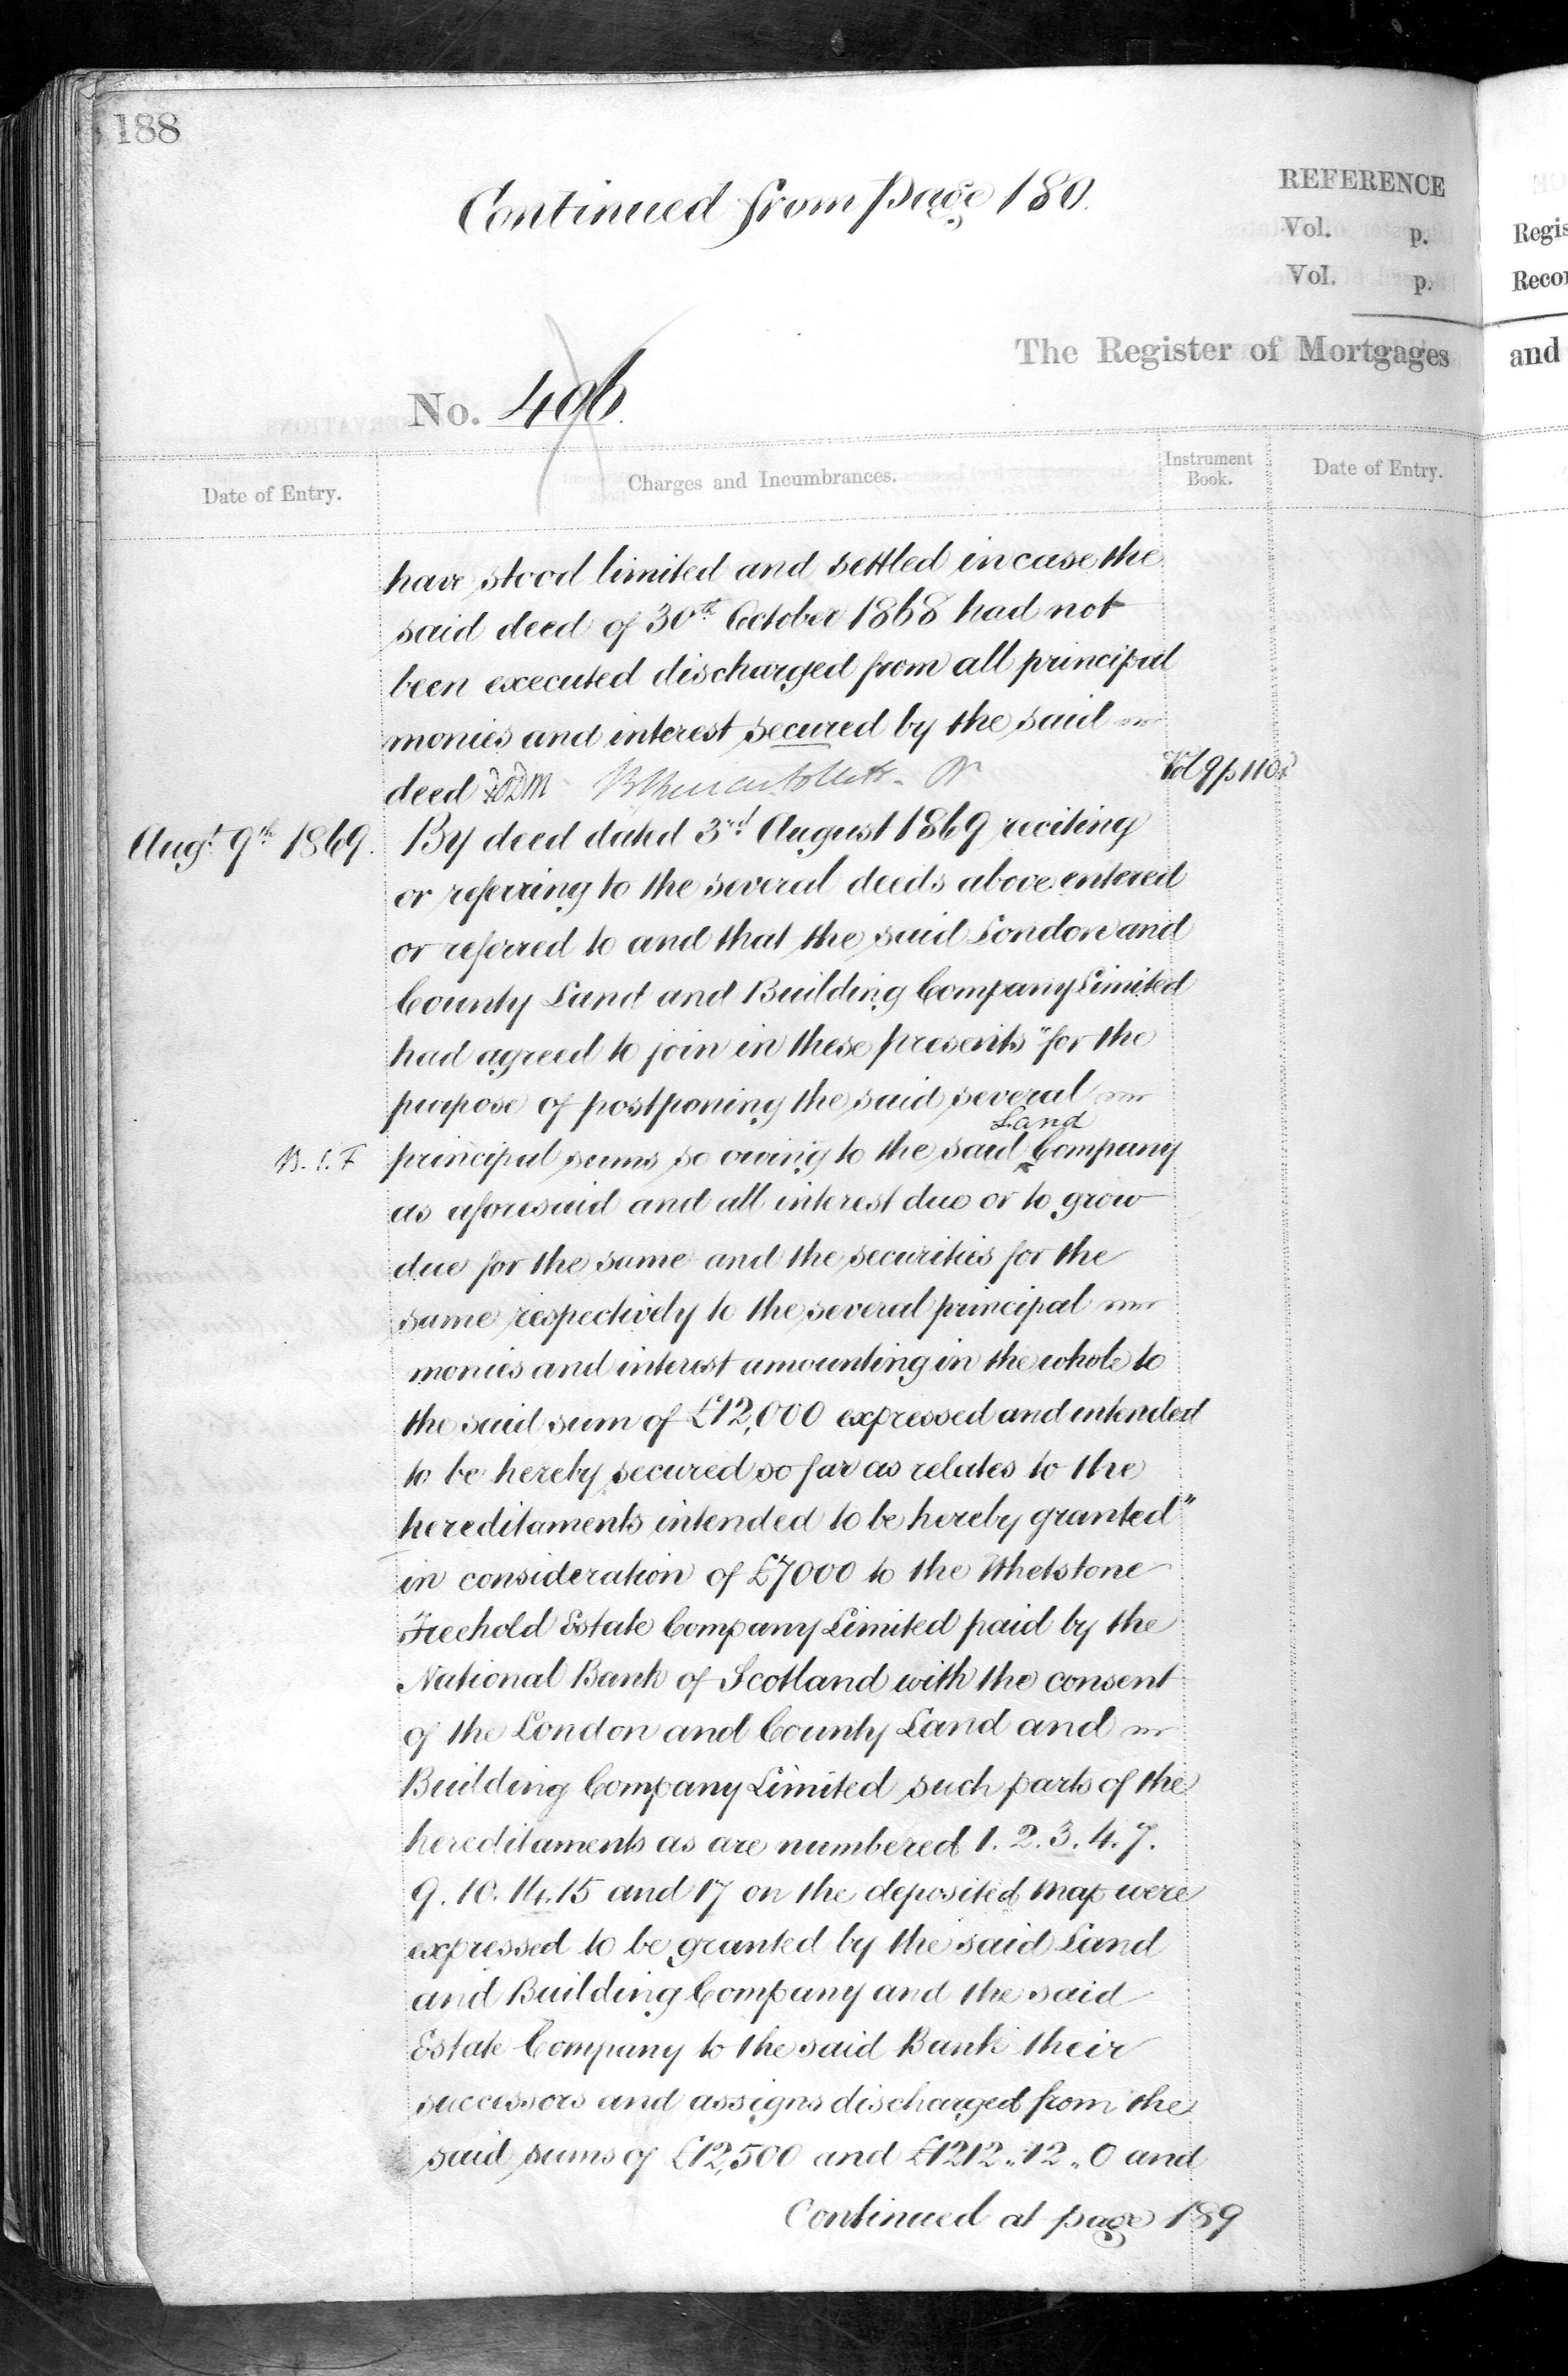 188
Continued from page 180.
REFERENCE
Vol. p.
Vol. p.
The Register of Mortgages
No. 406.
Date of Entry.
Charges and Incumbrances.
Instrument Book.
Date of Entry.
have stood limited and settled in case the
said deed of 30th October 1868 had not
been executed discharged from all principal
monies and interest secured by the said
deed
Vol 9 p 110
Augt. 9th 1869.
By deed dated 3rd August 1869 reciting
or referring to the several deeds above entered
or referred to and that the said London and
County Land and Building Company Limited
had agreed to join in these presents "for the
purpose of postponing the said several
Land
principal sums so owing to the said Company
as aforesaid and all interest due or to grow
due for the same and the securities for the
same respectively to the several principal
monies and interest amounting in the whole to
the said sum of £12,000 expressed and intended
to be hereby secured so far as relates to the
hereditaments intended to be hereby granted"
in consideration of £7000 to the Whetstone
Freehold Estate Company Limited paid by the
National Bank of Scotland with the consent
of the London and County Land and
Building Company Limited such parts of the
hereditaments as are numbered 1. 2. 3. 4. 7.
9. 10. 14. 15 and 17 on the deposited Map were
expressed to be granted by the said Land
and Building Company and the said
Estate Company to the said Bank their
successors and assigns discharged from the
said sums of £12,500 and £1212.. 12.. 0 and
Continued at page 189
Regis
Recor
and